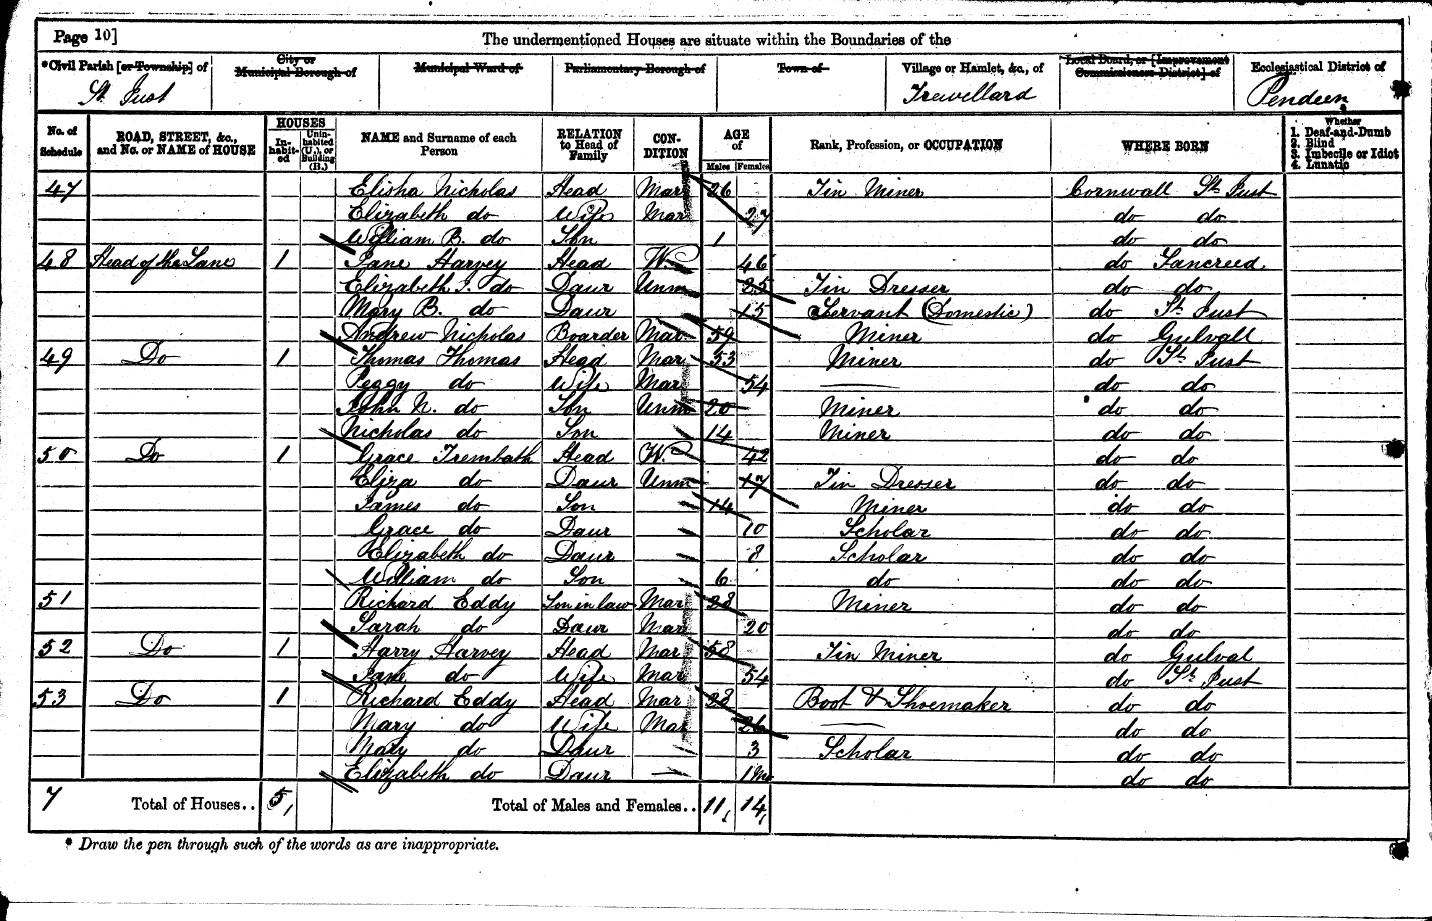 Page 10]
The undermentioned Houses are situate within the Boundaries of the
*Civil Parish [or Township] of
City or Municipal Borough of
Municipal Ward of
Parliamentary Borough of
Town of
Village or Hamlet, &c., of
Local Board, or [Improvement Commissioners District] of
Ecclesiastical District of
St Just
Trewellard
Pendeen
No. of Schedule
ROAD, STREET, &c., and No. or NAME of HOUSE
HOUSES
In-habit-ed
Unin-habited (U.), or Building (B.)
NAME and Surname of each Person
RELATION to Head of Family
CON-DITION
AGE of
Males
Females
Rank, Profession, or OCCUPATION
WHERE BORN
Whether
1. Deaf-and-Dumb
2. Blind
3. Imbecile or Idiot
4. Lunatic
47 Elisha Nicholas Head Mar 26 Tin Miner Cornwall St Just
Elizabeth do Wife Mar 27 do do
William B. do Son 1 do do
48 Head of the Lane 1 Jane Harvey Head W. 46 do Sancreed
Elizabeth J. do Daur Unm 25 Tin Dresser do do
Mary B. do Daur 15 Servant (Domestic) do St Just
Andrew Nicholas Boarder Mar 59 Miner do Gulvall
49 Do 1 Thomas Thomas Head Mar 53 Miner do St Just
Peggy do Wife Mar 54 do do
John N. do Son Unm 20 Miner do do
Nicholas do Son 14 Miner do do
50 Do 1 Grace Trembath Head W. 42 do do
Eliza do Daur Unm 17 Tin Dresser do do
James do Son 14 Miner do do
Grace do Daur 10 Scholar do do
Elizabeth do Daur 8 Scholar do do
William do Son 6 do do do
51 Richard Eddy Son in law Mar 28 Miner do do
Sarah do Daur Mar 20 do do
52 Do 1 Harry Harvey Head Mar 58 Tin Miner do Gulval
Jane do Wife Mar 54 do St Just
53 Do 1 Richard Eddy Head Mar 28 Boot & Shoemaker do do
Mary do Wife Mar 26 do do
Mary do Daur 3 Scholar do do
Elizabeth do Daur 1 Mo do do
7 Total of Houses.. 5 Total of Males and Females.. 11 14
* Draw the pen through such of the words as are inappropriate.